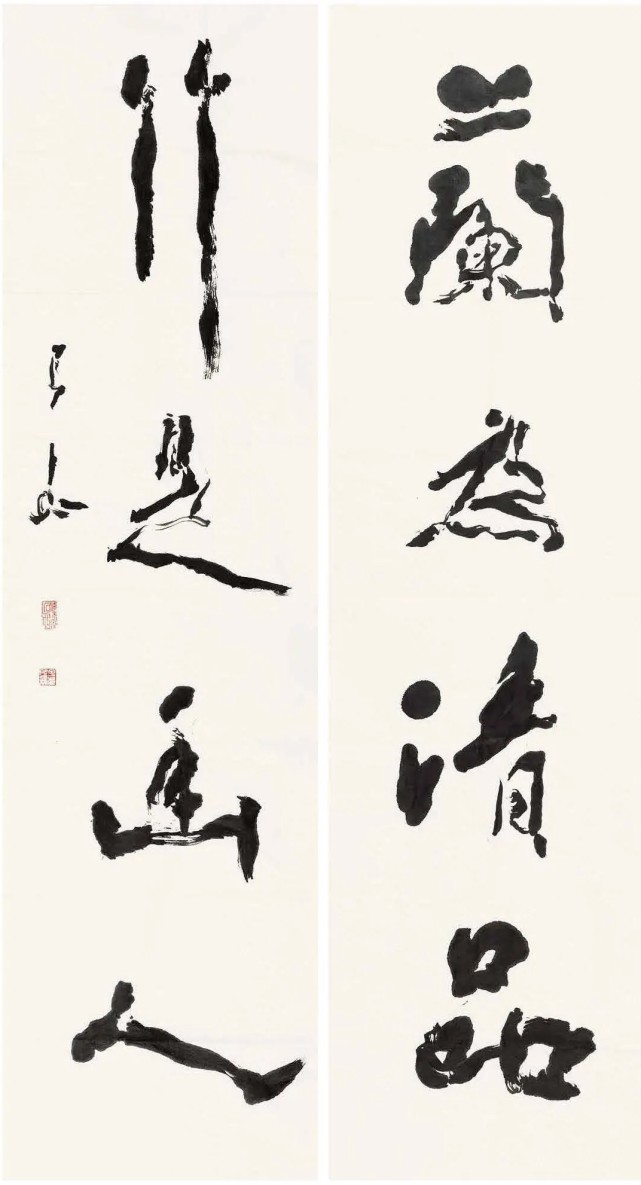 蘭為清品
竹是幽人